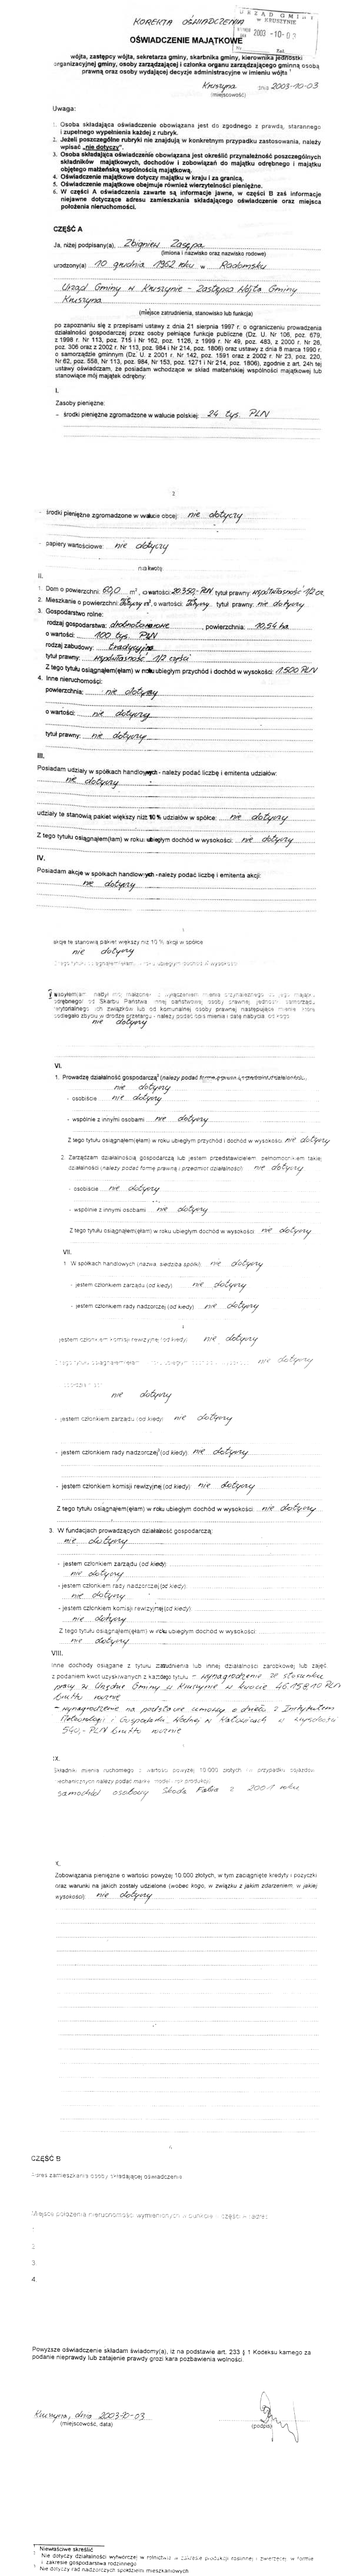 KOREKTA OŚWIADCZENIA
URZĄD GMINY
w KRUSZYNIE
2003-10-03
OŚWIADCZENIE MAJĄTKOWE
wójta, zastępcy wójta, sekretarza gminy, skarbnika gminy, kierownika jednostki
organizacyjnej gminy, osoby zarządzającej i członka organu zarządzającego gminną osobą
prawną oraz osoby wydającej decyzje administracyjne w imieniu wójta 1
Kruszyna dnia 2003-10-03
(miejscowość)
Uwaga:
1. Osoba składająca oświadczenie obowiązana jest do zgodnego z prawdą, starannego
i zupełnego wypełnienia każdej z rubryk.
2. Jeżeli poszczególne rubryki nie znajdują w konkretnym przypadku zastosowania, należy
wpisać „nie dotyczy".
3. Osoba składająca oświadczenie obowiązana jest określić przynależność poszczególnych
składników majątkowych, dochodów i zobowiązań do majątku odrębnego i majątku
objętego małżeńską wspólnością majątkową.
4. Oświadczenie majątkowe dotyczy majątku w kraju i za granicą.
5. Oświadczenie majątkowe obejmuje również wierzytelności pieniężne.
6. W części A oświadczenia zawarte są informacje jawne, w części B zaś informacje
niejawne dotyczące adresu zamieszkania składającego oświadczenie oraz miejsca
położenia nieruchomości.
CZĘŚĆ A
Ja, niżej podpisany(a), Zbigniew Zasępa
(imiona i nazwisko oraz nazwisko rodowe)
urodzony(a) 10 grudnia 1962 roku w Radomsku
Urząd Gminy w Kruszynie - Zastępca Wójta Gminy
Kruszyna
(miejsce zatrudnienia, stanowisko lub funkcja)
po zapoznaniu się z przepisami ustawy z dnia 21 sierpnia 1997 r. o ograniczeniu prowadzenia
działalności gospodarczej przez osoby pełniące funkcje publiczne (Dz. U. Nr 106, poz. 679,
z 1998 r. Nr 113, poz. 715 i Nr 162, poz. 1126, z 1999 r. Nr 49, poz. 483, z 2000 r. Nr 26,
poz. 306 oraz z 2002 r. Nr 113, poz. 984 i Nr 214, poz. 1806) oraz ustawy z dnia 8 marca 1990 r.
o samorządzie gminnym (Dz. U. z 2001 r. Nr 142, poz. 1591 oraz z 2002 r. Nr 23, poz. 220,
Nr 62, poz. 558, Nr 113, poz. 984, Nr 153, poz. 1271 i Nr 214, poz. 1806), zgodnie z art. 24h tej
ustawy oświadczam, że posiadam wchodzące w skład małżeńskiej wspólności majątkowej lub
stanowiące mój majątek odrębny:
I.
Zasoby pieniężne:
- środki pieniężne zgromadzone w walucie polskiej: 24 tys. PLN
- środki pieniężne zgromadzone w walucie obcej: nie dotyczy
- papiery wartościowe: nie dotyczy
na kwotę
II.
1. Dom o powierzchni: 60,0 m², o wartości: 20.350,-PLN tytuł prawny: współwłasność 1/2 cz.
2. Mieszkanie o powierzchni: nie dotyczy m², o wartości: nie dotyczy tytuł prawny: nie dotyczy
3. Gospodarstwo rolne:
rodzaj gospodarstwa: drobnotowarowe, powierzchnia: 10,54 ha
o wartości: 100 tys. PLN
rodzaj zabudowy: tradycyjna
tytuł prawny: współwłasność 1/2 części
Z tego tytułu osiągnąłem(ęłam) w roku ubiegłym przychód i dochód w wysokości: 1500 PLN
4. Inne nieruchomości:
powierzchnia: nie dotyczy
o wartości: nie dotyczy
tytuł prawny: nie dotyczy
III.
Posiadam udziały w spółkach handlowych - należy podać liczbę i emitenta udziałów:
nie dotyczy
udziały te stanowią pakiet większy niż 10 % udziałów w spółce: nie dotyczy
Z tego tytułu osiągnąłem(ęłam) w roku ubiegłym dochód w wysokości: nie dotyczy
IV.
Posiadam akcje w spółkach handlowych - należy podać liczbę i emitenta akcji:
nie dotyczy
akcje te stanowią pakiet większy niż 10 % akcji w spółce
nie dotyczy
Z tego tytułu osiągnąłem(ęłam) w roku ubiegłym dochód w wysokości
V.
nie dotyczy
VI.
1. Prowadzę działalność gospodarczą² (należy podać formę prawną i przedmiot działalności):
nie dotyczy
- osobiście nie dotyczy
- wspólnie z innymi osobami nie dotyczy
Z tego tytułu osiągnąłem(ęłam) w roku ubiegłym przychód i dochód w wysokości: nie dotyczy
2. Zarządzam działalnością gospodarczą lub jestem przedstawicielem, pełnomocnikiem takiej
działalności (należy podać formę prawną i przedmiot działalności): nie dotyczy
- osobiście nie dotyczy
- wspólnie z innymi osobami nie dotyczy
Z tego tytułu osiągnąłem(ęłam) w roku ubiegłym dochód w wysokości: nie dotyczy
VII.
1. W spółkach handlowych (nazwa, siedziba spółki): nie dotyczy
- jestem członkiem zarządu (od kiedy): nie dotyczy
- jestem członkiem rady nadzorczej (od kiedy): nie dotyczy
4
- jestem członkiem komisji rewizyjnej (od kiedy): nie dotyczy
nie dotyczy
nie dotyczy
- jestem członkiem zarządu (od kiedy): nie dotyczy
- jestem członkiem rady nadzorczej³ (od kiedy): nie dotyczy
- jestem członkiem komisji rewizyjnej (od kiedy): nie dotyczy
Z tego tytułu osiągnąłem(ęłam) w roku ubiegłym dochód w wysokości: nie dotyczy
3. W fundacjach prowadzących działalność gospodarczą:
nie dotyczy
- jestem członkiem zarządu (od kiedy):
nie dotyczy
- jestem członkiem rady nadzorczej (od kiedy):
nie dotyczy
- jestem członkiem komisji rewizyjnej (od kiedy):
nie dotyczy
Z tego tytułu osiągnąłem(ęłam) w roku ubiegłym dochód w wysokości:
nie dotyczy
VIII.
Inne dochody osiągane z tytułu zatrudnienia lub innej działalności zarobkowej lub zajęć,
z podaniem kwot uzyskiwanych z każdego tytułu - wynagrodzenie ze stosunku
pracy w Urzędzie Gminy w Kruszynie w kwocie 46.158,10 PLN
brutto rocznie
- wynagrodzenie na podstawie umowy o dzieło z Instytutem
Meteorologii i Gospodarki Wodnej w Katowicach w wysokości
540,- PLN brutto rocznie
IX.
Składniki mienia ruchomego o wartości powyżej 10 000 złotych (w przypadku pojazdów
mechanicznych należy podać markę, model i rok produkcji):
samochód osobowy Skoda Fabia z 2001 roku
X.
Zobowiązania pieniężne o wartości powyżej 10 000 złotych, w tym zaciągnięte kredyty i pożyczki
oraz warunki na jakich zostały udzielone (wobec kogo, w związku z jakim zdarzeniem, w jakiej
wysokości): nie dotyczy
CZĘŚĆ B
Adres zamieszkania osoby składającej oświadczenie
Miejsce położenia nieruchomości wymienionych w punkcie II części A (adres)
1.
2.
3.
4.
Powyższe oświadczenie składam świadomy(a), iż na podstawie art. 233 § 1 Kodeksu karnego za
podanie nieprawdy lub zatajenie prawdy grozi kara pozbawienia wolności.
Kruszyna, dnia 2003-10-03
(miejscowość, data)
(podpis)
1 Niewłaściwe skreślić
2 Nie dotyczy działalności wytwórczej w rolnictwie w zakresie produkcji roślinnej i zwierzęcej, w formie
i zakresie gospodarstwa rodzinnego
3 Nie dotyczy rad nadzorczych spółdzielni mieszkaniowych